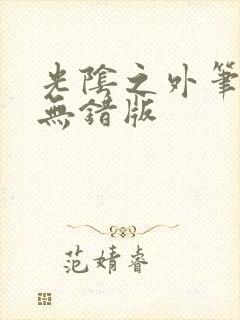 光陰之外筆
無錯版
范婧睿